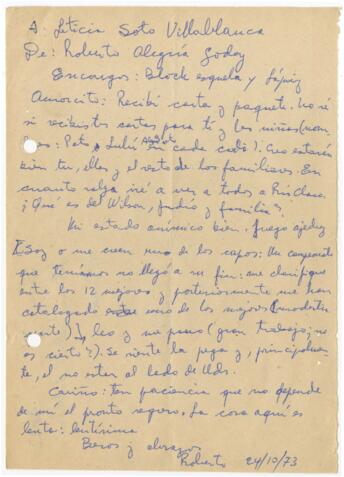 A: Leticia Soto Villablanca
De: Roberto Alegría Godoy
Encargos: Block esquela y Lápiz
Amorcito: Recibí carta y paquete. No sé
si recibiste cartas para ti y las niñas (nom
bres: Pato, Lulú en cada cual). Creo estarán
bien tu, ellas y el resto de los familiares. En
cuanto salga iré a ver a todos a
¿Qué es de Wilson, Judío y familia?
Mi estado anímico bien. Juego ajedrez
Soy o me creen uno de los capos: Un campeonato
que teníamos no llegó a su fin: me clasifiqué
entre los 12 mejores y posteriormente me han
catalogado como uno de los mejores (modestia
aparte), leo y me paseo (gran trabajo; no
es cierto?). Se siente la pega y, principalmen
te, el no estar al lado de Uds.
Cariño: ten paciencia que no depende
de mí el pronto regreso. La cosa aquí es
lenta: lentísima
Besos y abrazos
Roberto 24/10/73